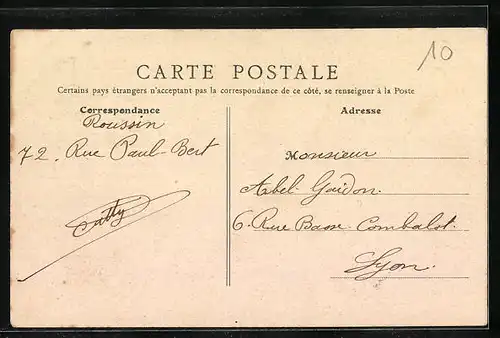 10
CARTE POSTALE
Certains pays étrangers n'acceptant pas la correspondance de ce côté, se renseigner à la Poste
Correspondance
Roussin
72. Rue Paul-Bert
Adresse
Monsieur
Abel Guidon.
6. Rue Basse Combalot.
Lyon.